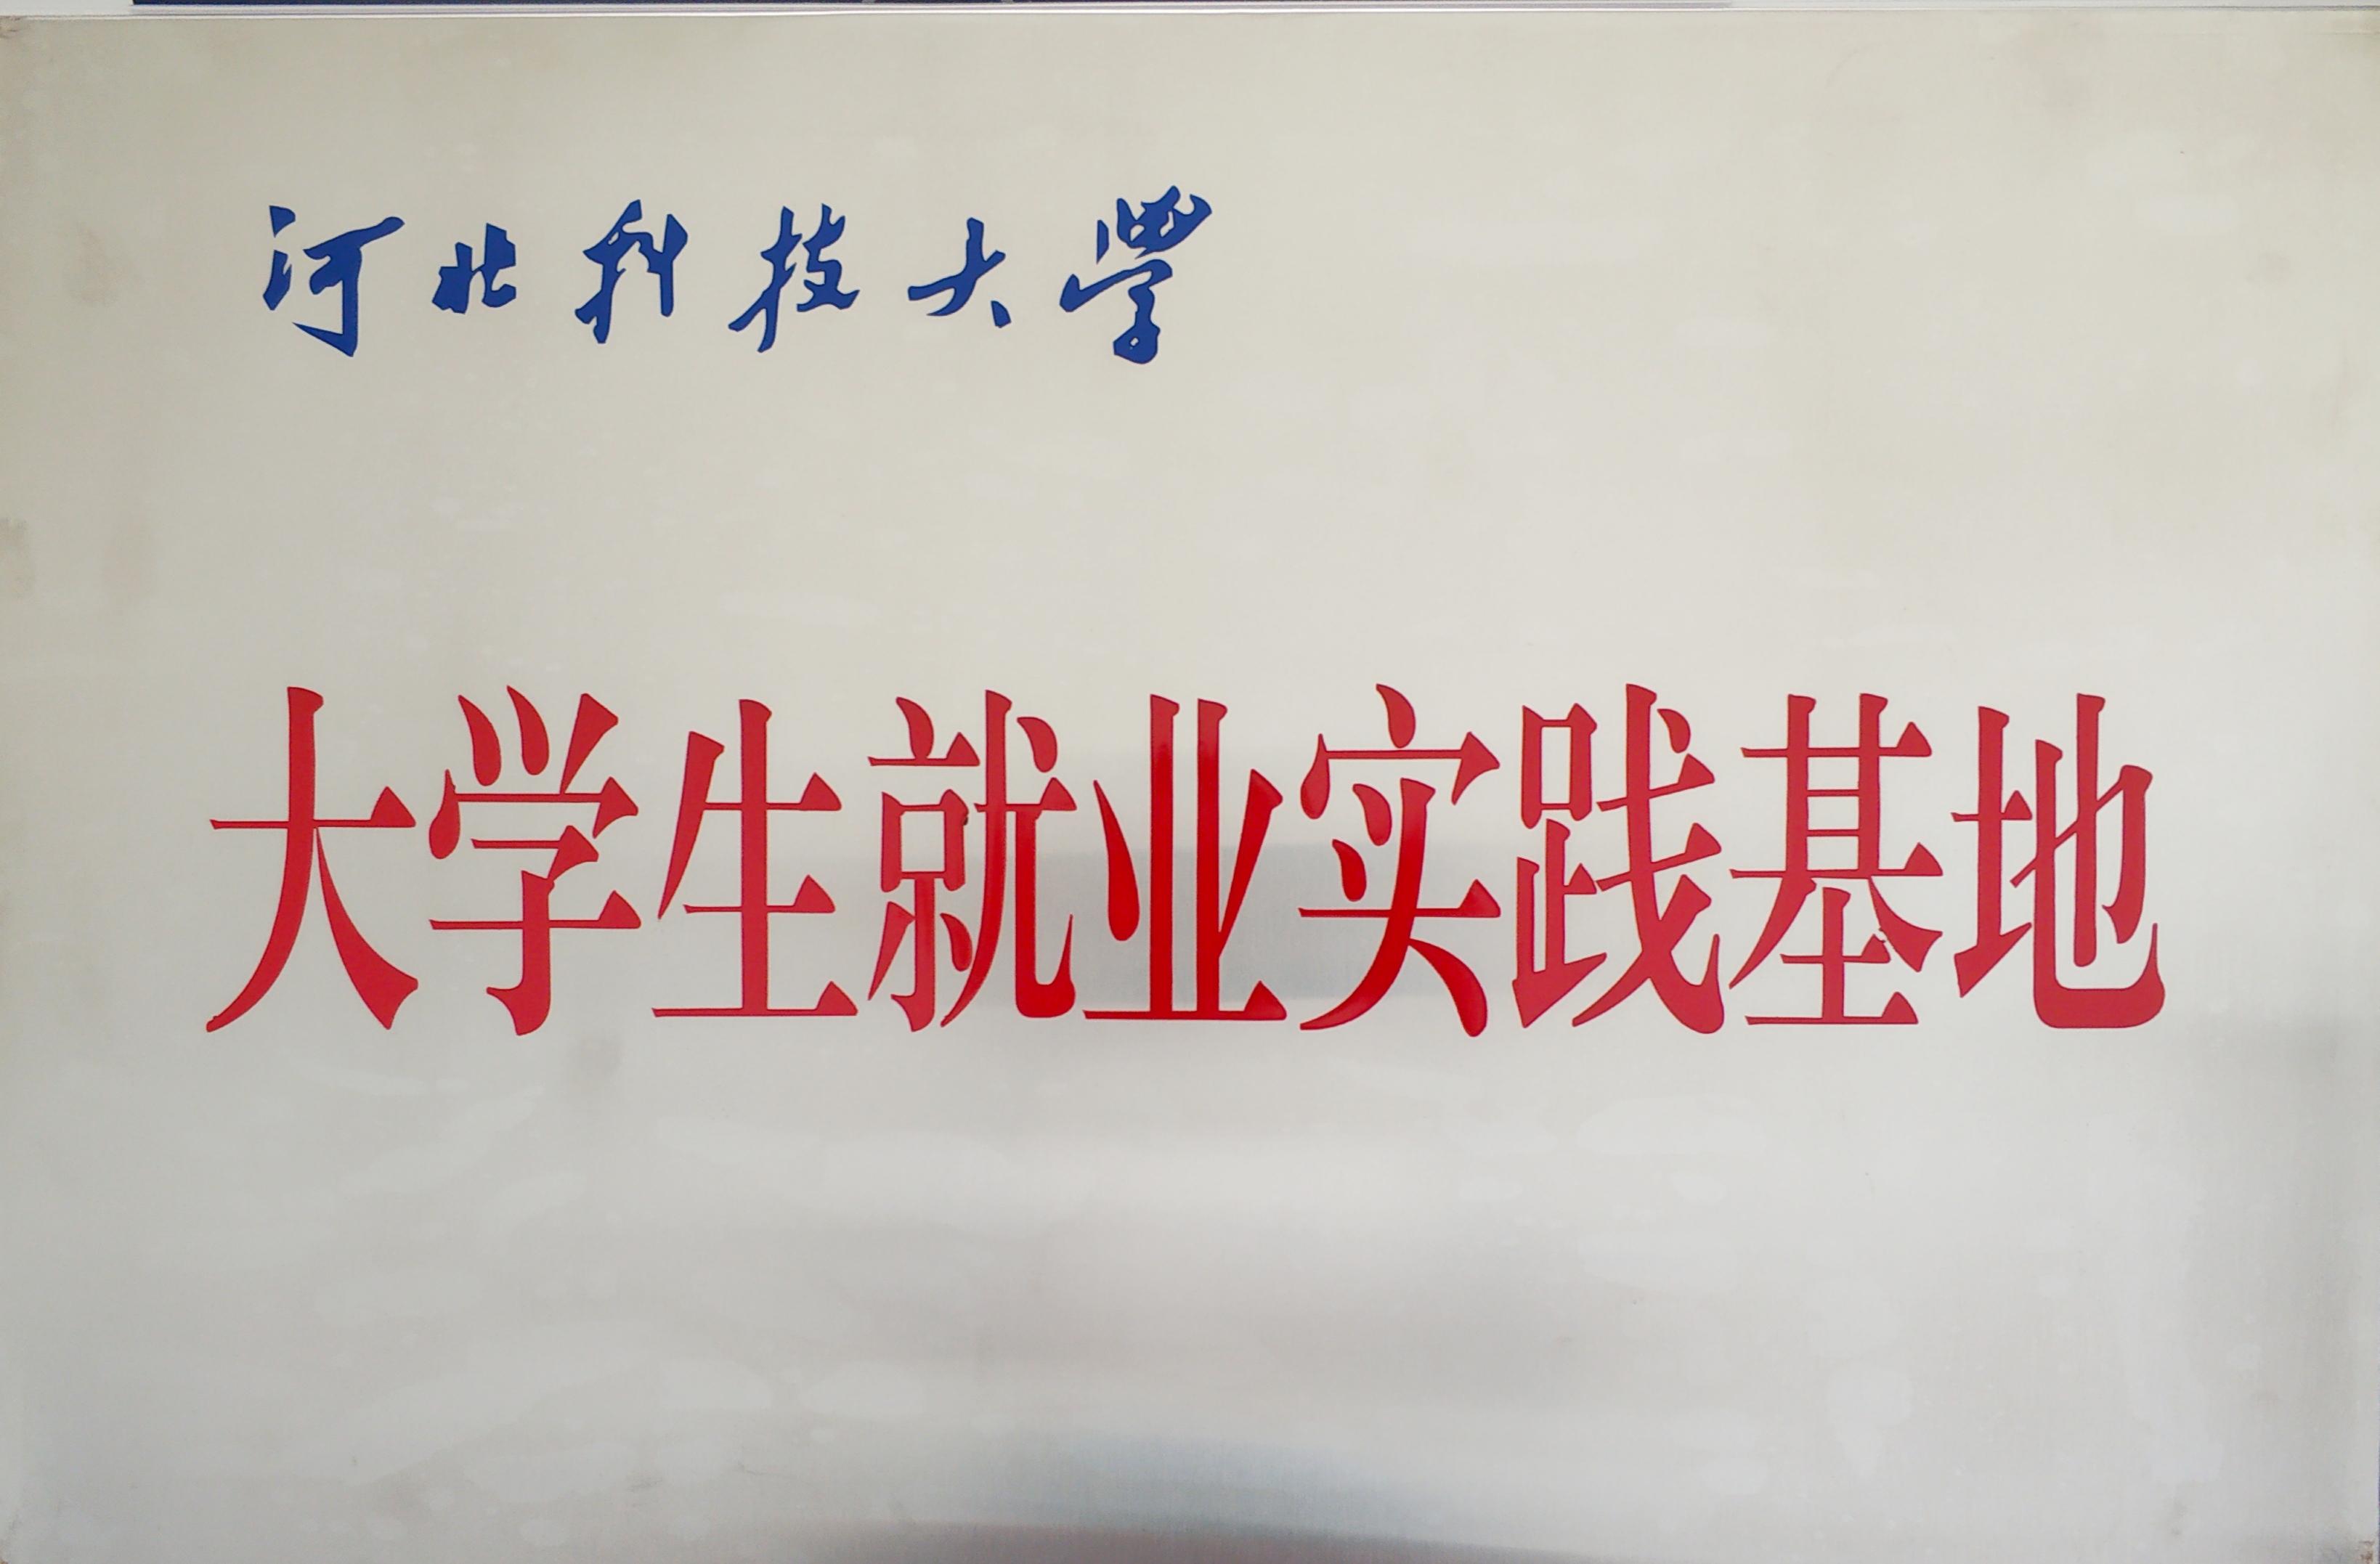 河北科技大學
大学生就业实践基地